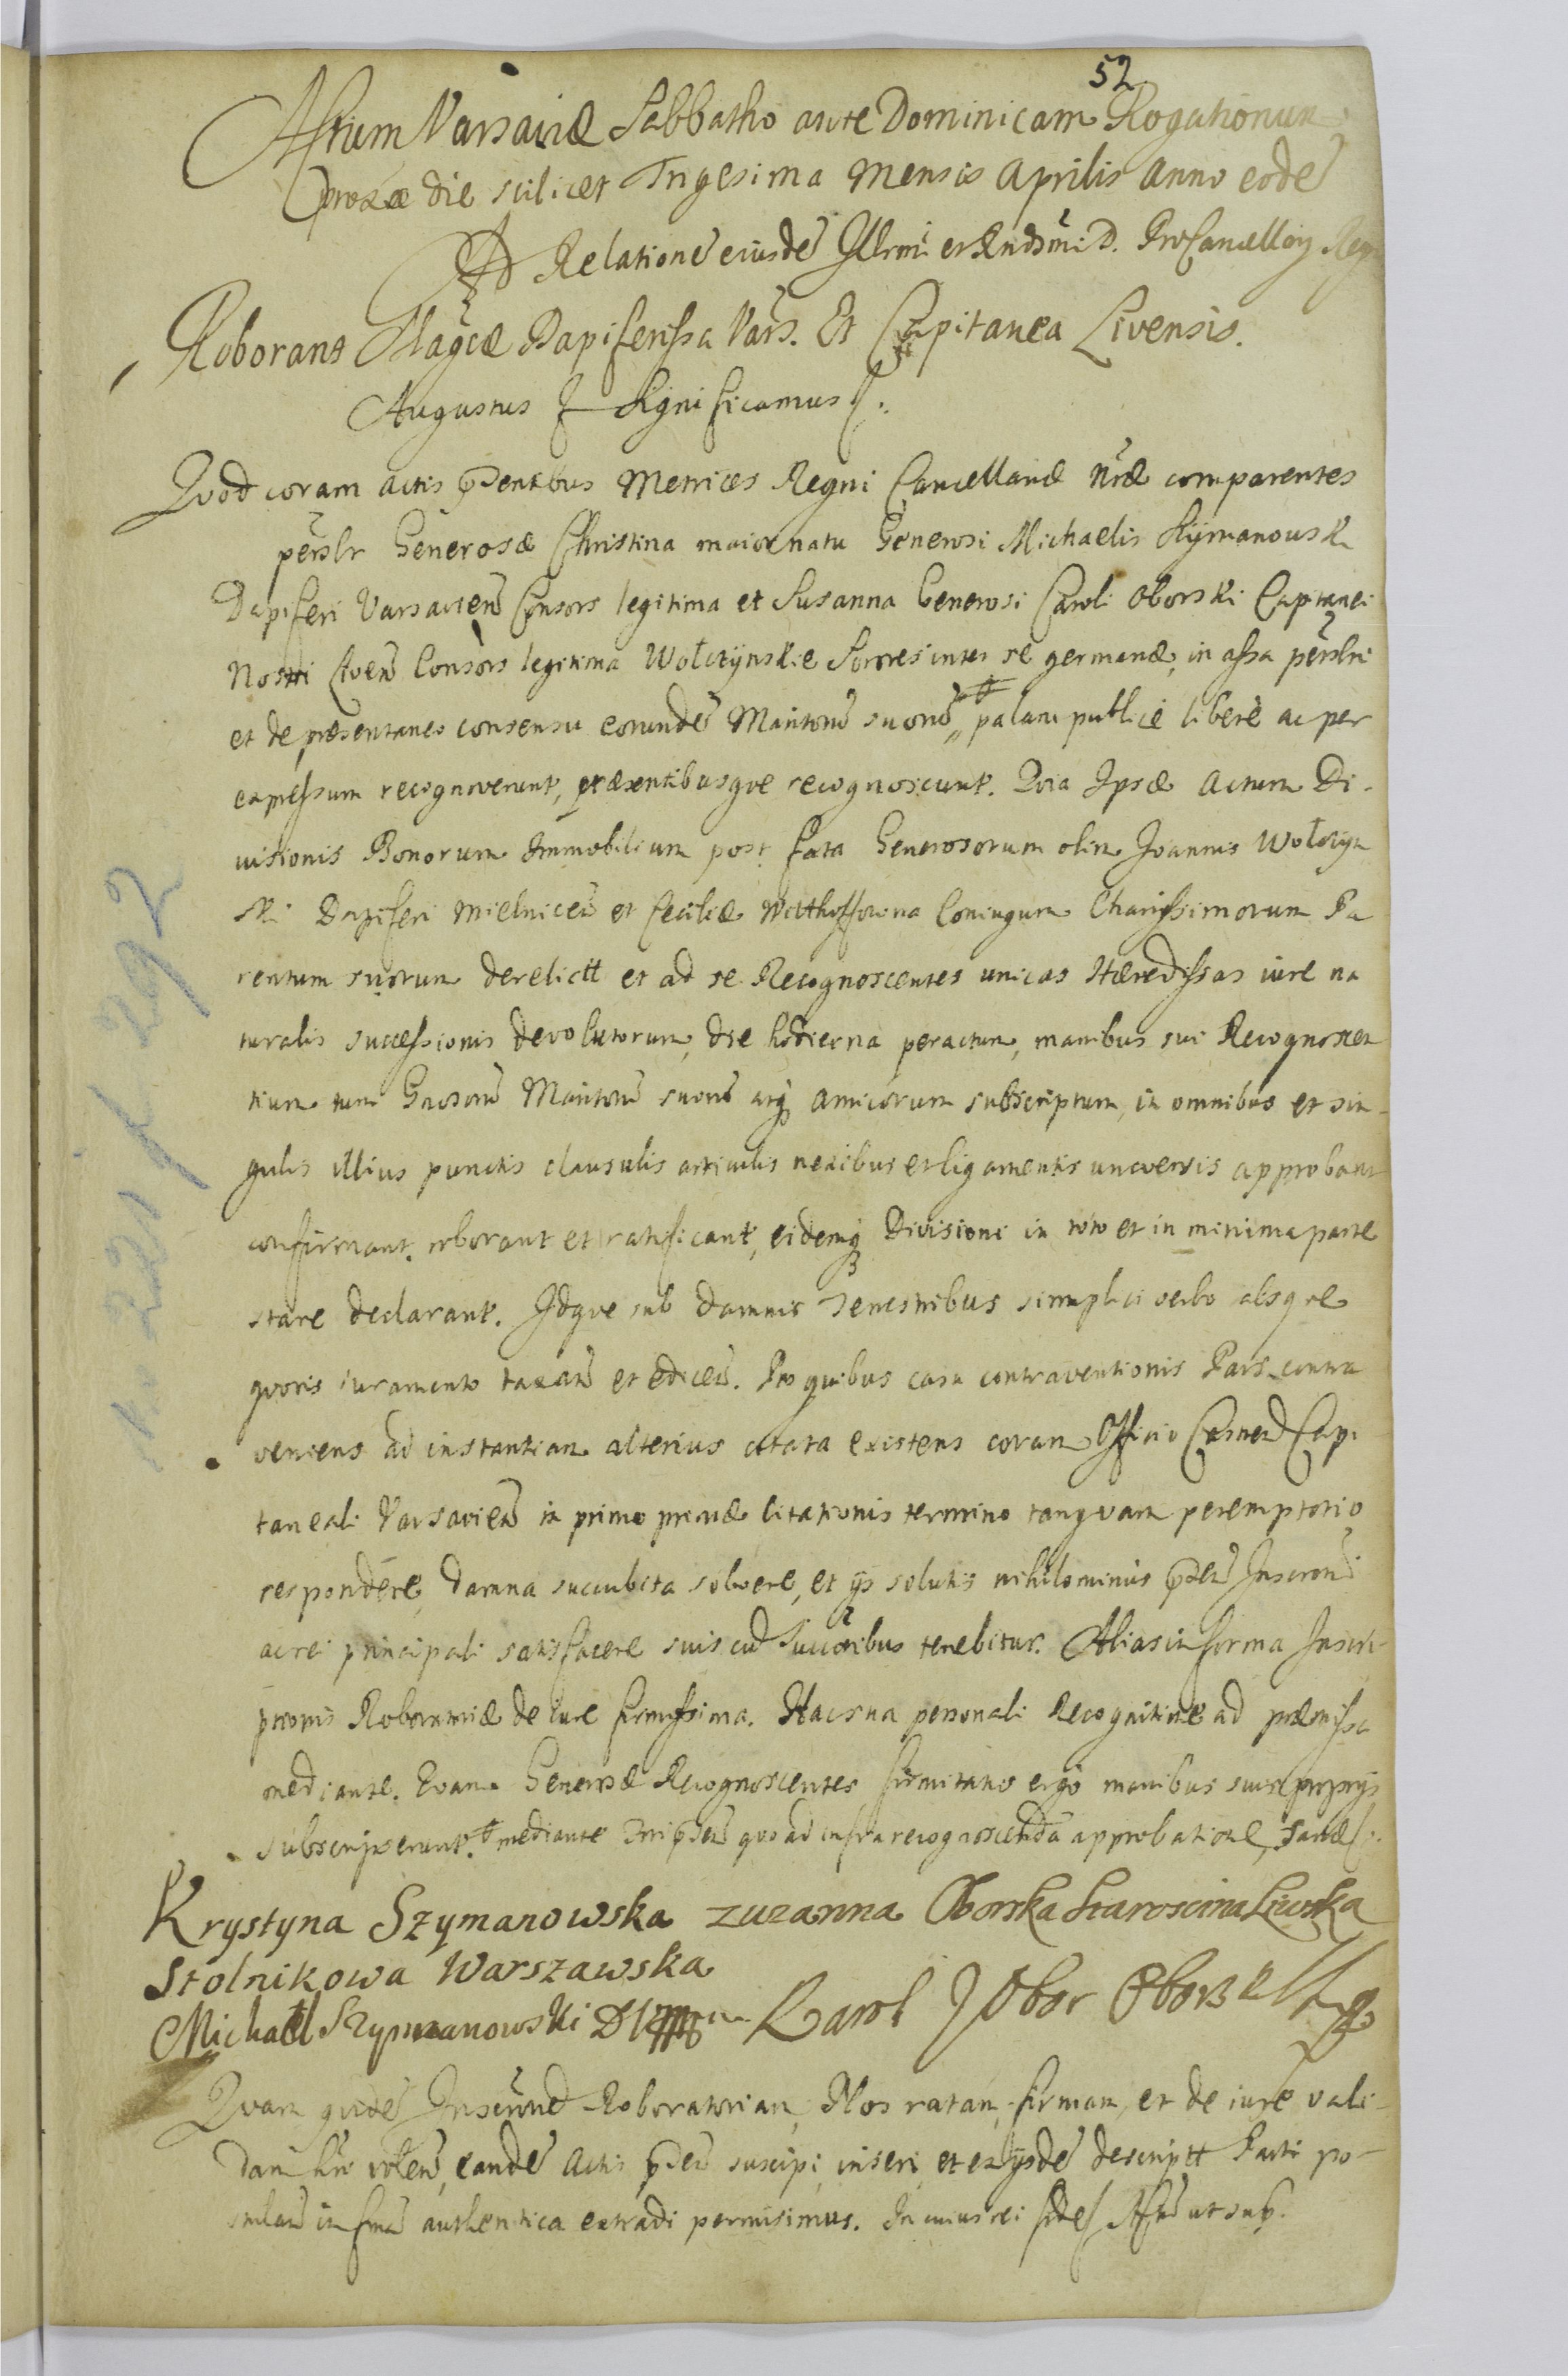 52
Actum Varsaviæ Sabbatho ante Dominicam Rogationum
proxæ die scilicet Trigesima Mensis Aprilis Anno eode
Ad Relatione eiusde Illrmi et Rndsmi D. ProCancellarij Regni
Roborans Magcæ Dapiferissa Vars. Et Capitanea Livensis.
Augustus Significamus
Quod coram actis pdentibus Metrices Regni Cancellariæ nræ comparentes
personlr Generosæ Christina maior natu Generosi Michaelis Szymanouski
Dapiferi Varsavien Consors legitima et Susanna Generosi Caroli Oborski Capitanei
Nostri Liven Consors legitima Wołczynskie Sorores inter se germanæ, in assa psnlri
et de præsentaneo consensu eorunde Maritoru suoru, palam publice libere ac per
expressum recognoverunt, præsentibusque recognoscunt. Quia Ipsæ actum Di-
visionis Bonorum Immobilium post fata Generosorum olim Joannis Wołczyn
ski Dapiferi Mielnicen et Ceciliæ Coniugum Charissimorum Pa
rentum suorum derelictt et ad se Recognoscentes unicas Hæredissas iure na
turalis successionis devolutorum, die hodierna peractum, manibus sui Recognoscen
tium tum Gnosoru Maritoru suoru atq amicorum subscriptum, in omnibus et sin-
gulis illius punctis clausulis articulis nexibus et ligamentis universis approbant
confirmant, roborant et ratificant, eidemq Divisioni in toto et in minima parte
stare declarant. Idque sub damnis terrestribus simplici verbo absque
quovis iuramento taxan et edicen. Pro quibus casu contraventionis Pars contra
veniens ad instantiam alterius citata existens coram Officio Castren Capi
taneali Varsavien in primo præmæ citationis termino tanquam peremptorio
respondere, damna succubita solvere, et ijs solutis nihilominus pden Inscroni
ac rei principali satisfacere suis cu Succoribus tenebitur. Alias in forma Inscri-
ptionis Roboratoriæ de iure firmissima. Hac sua personali Recognitione ad præmissa
mediante. Quam Generosæ Recognoscentes firmitatis ergo manibus suis proprijs
subscripserunt. mediante quo ad infra recognoscenda approbatione,
Krystyna Szymanowska zuzanna Oborska Staroscina Liwska
Stolnikowa Warszawska
Michael Szymanowski Karol Obor Oborski
Quam quide Inscrone Roboratoriam, Nos ratam, firmam, et de iure vali-
dam hre volen, eande Actis pden suscipi, inseri, et ex ijsde descriptt Parti po-
stulan in fma authentica extradi permisimus. In cuius rei fide Actu ut sup.